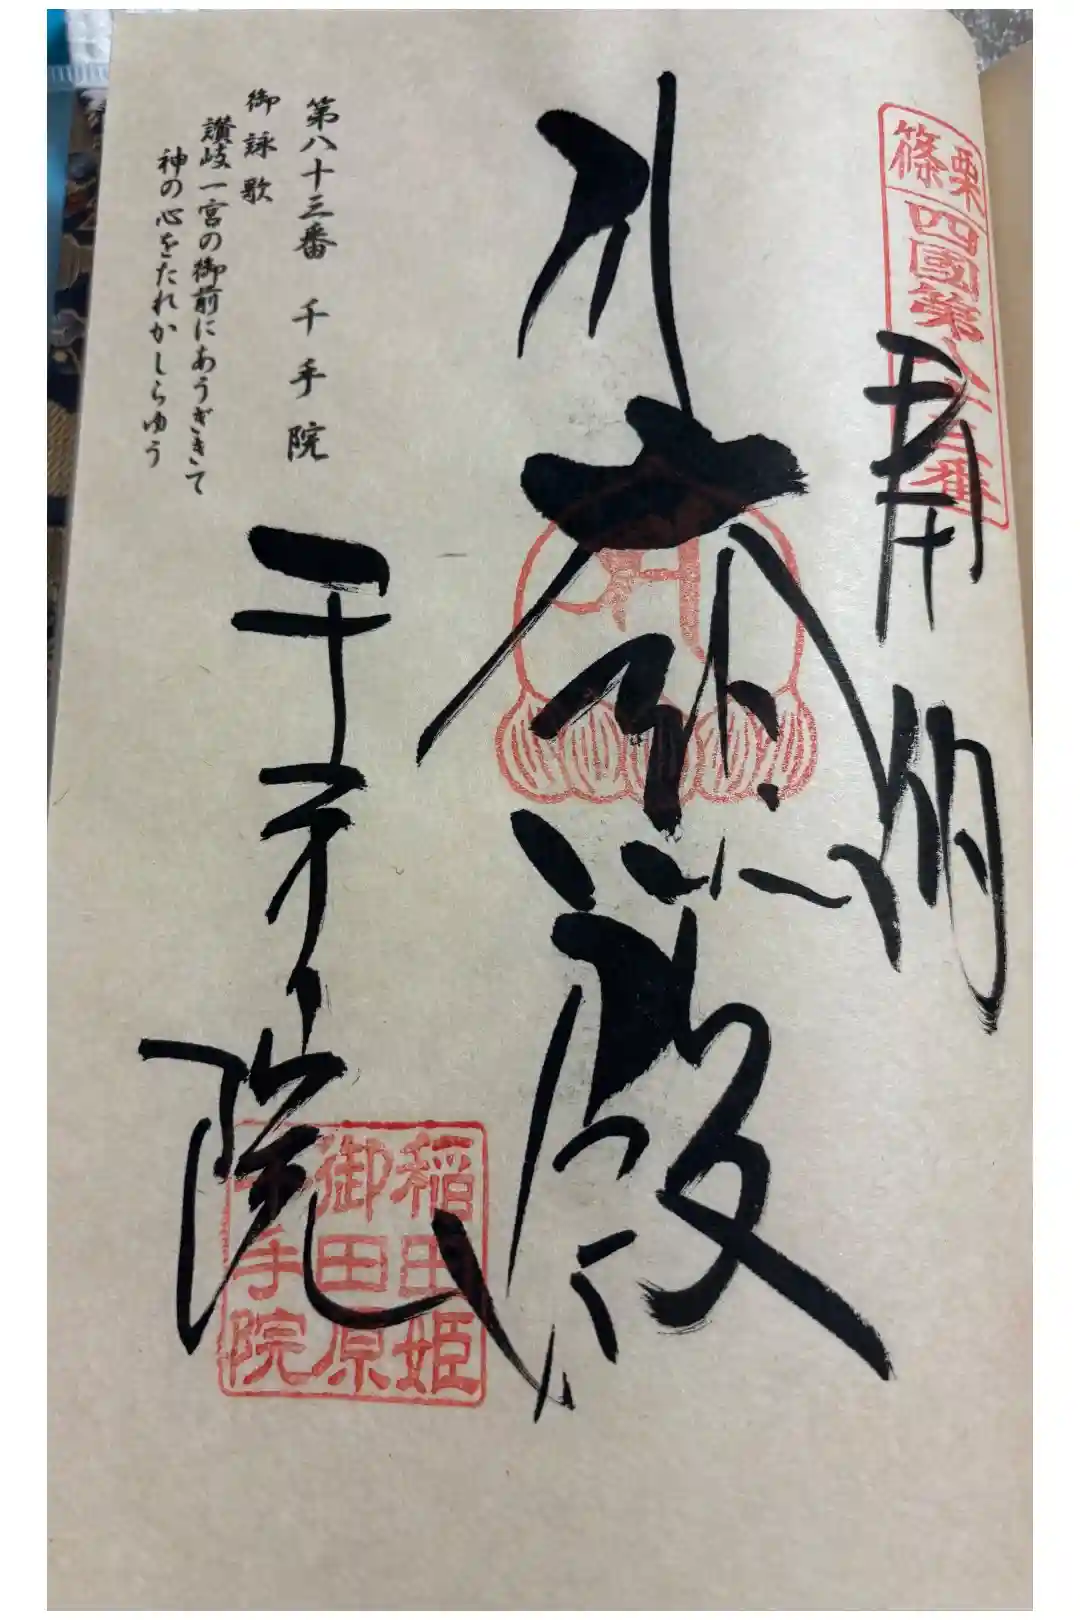 篠栗
四國第八十三番
奉納
大悲殿
千手院
稲田姫
御田原
千手院
第八十三番 千手院
御詠歌
讃岐一宮の御前にあうぎきて
神の心をたれかしらゆう